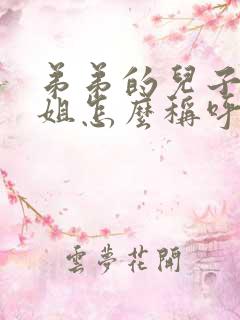 弟弟的兒子
姐怎麼稱呼
雲夢花開